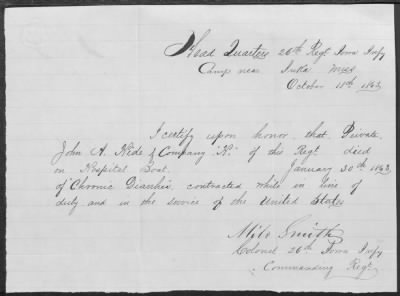 Head Quarters 26th Regt Iowa Infy
Camp near Iuka Miss
October 18th 1863
I certify upon honor, that Private
John A. Nide of Company "K." of this Regt died
on Hospital Boat, January 30th 1863,
of Chronic Diarrhea, contracted while in line of
duty and in the service of the United States
Milo Smith
Colonel 26th Iowa Infy
Commanding Regt